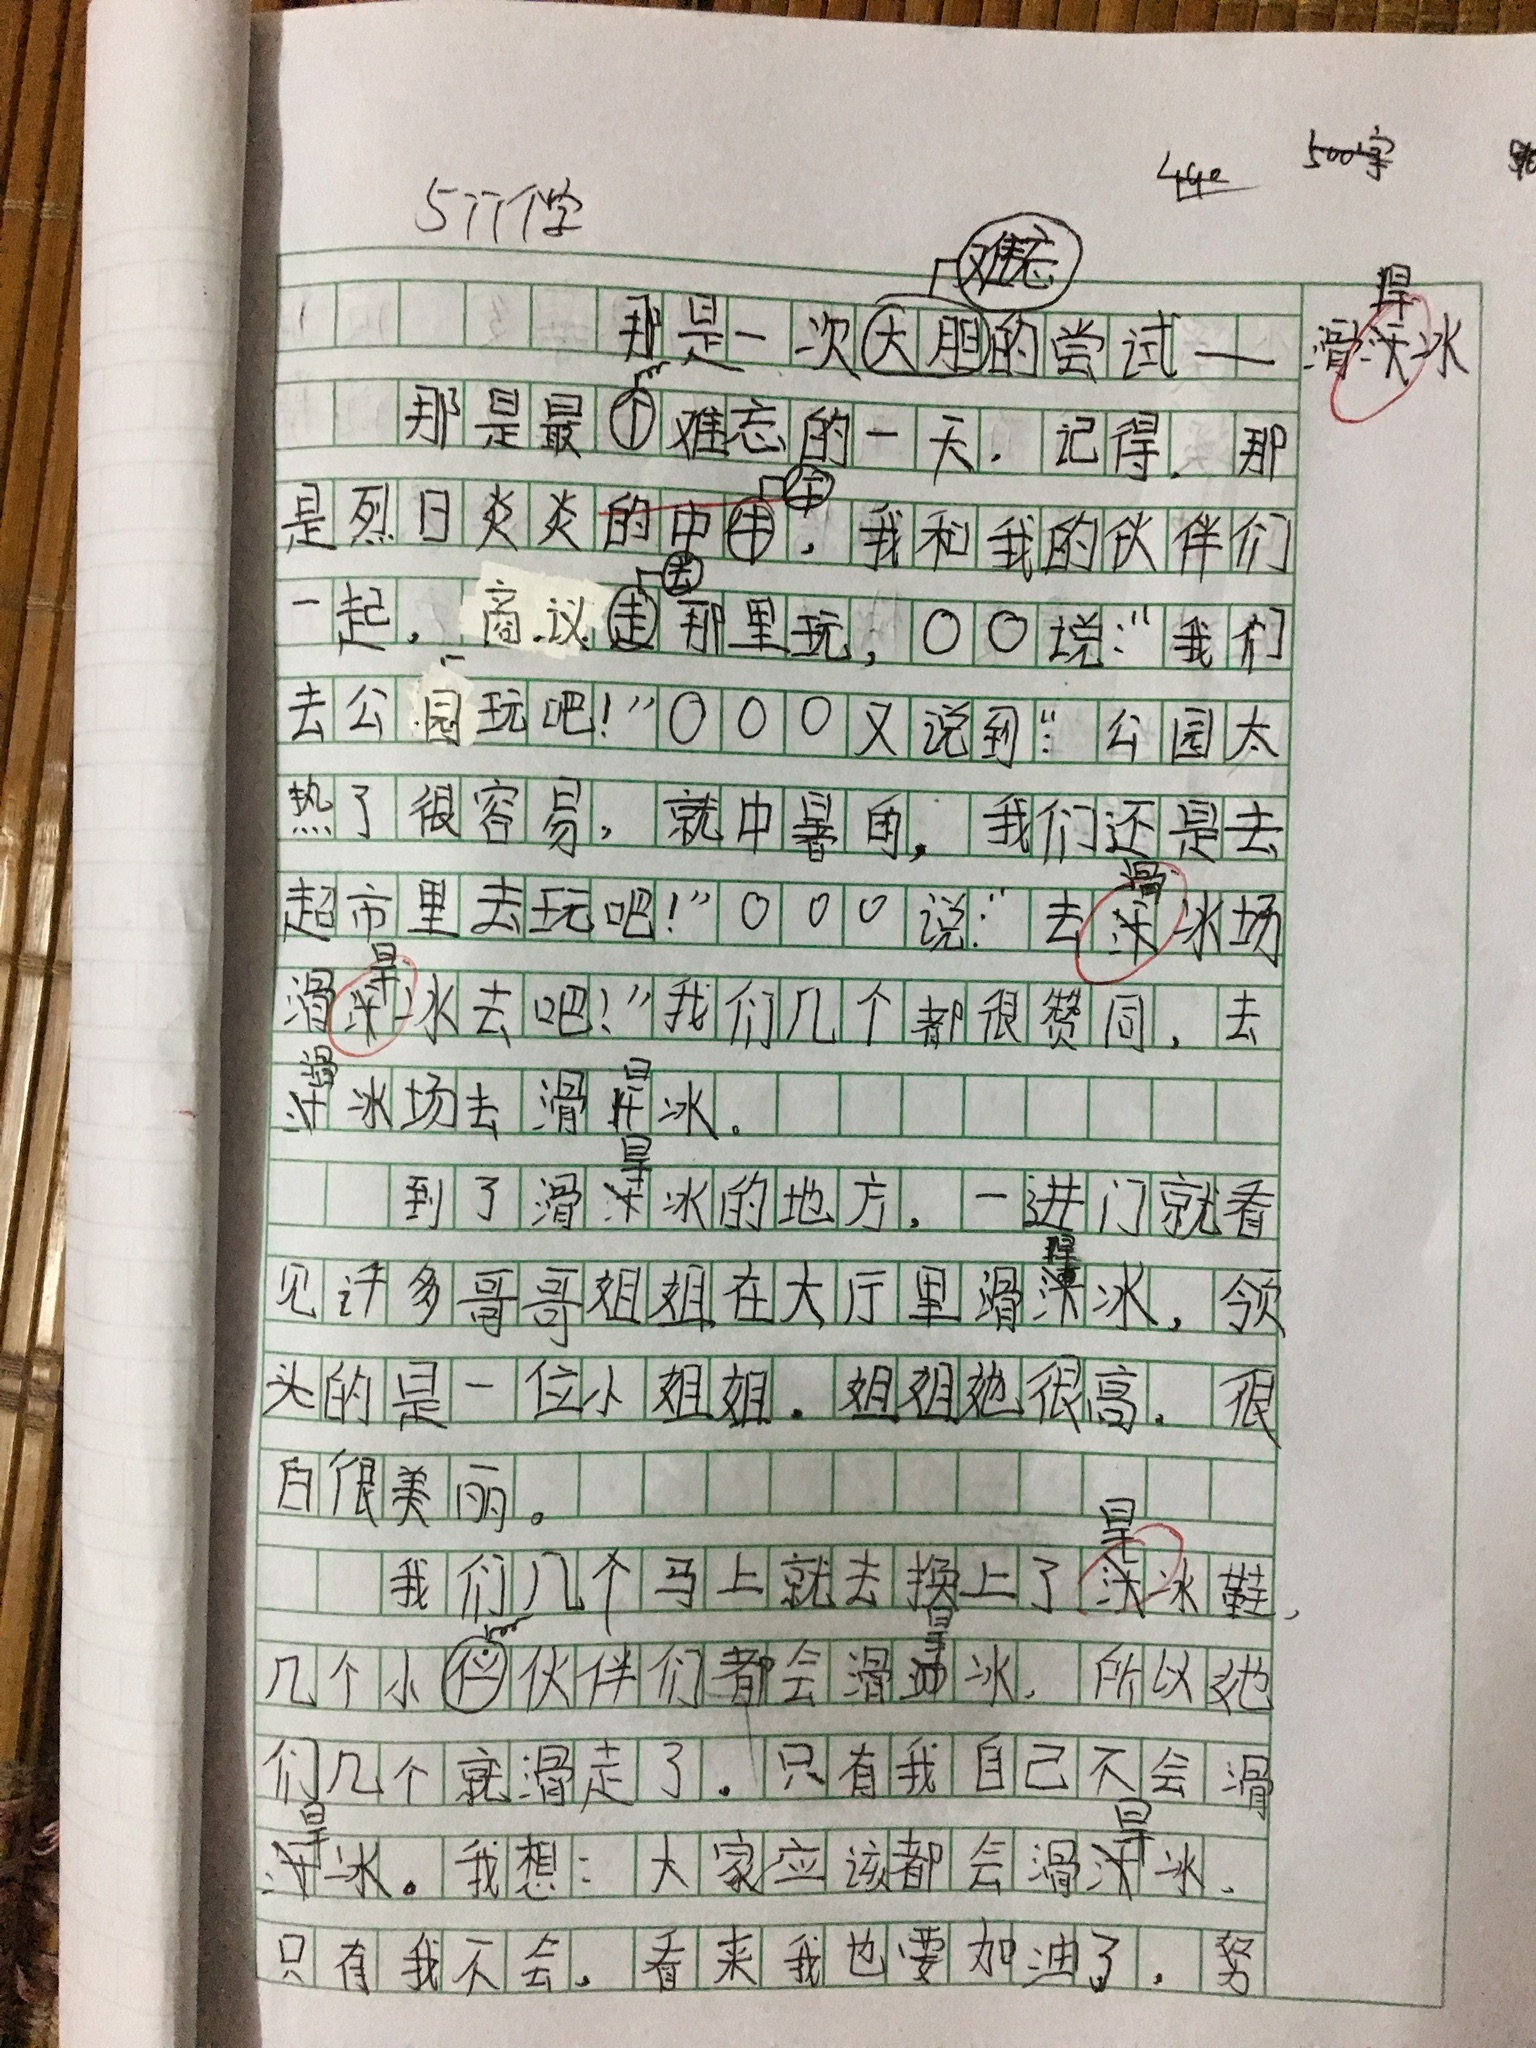 577个字
500字
难忘
那是一次大胆的尝试——滑冰
那是最个难忘的一天.记得.那
是烈日炎炎的中午,我和我的伙伴们
一起,商议走那里玩,〇〇说:"我们
去公园玩吧!"〇〇〇又说到:"公园太
热了很容易,就中暑的,我们还是去
超市里去玩吧!"〇〇〇说:"去滑冰场
滑旱冰去吧!"我们几个都很赞同,去
滑冰场去滑旱冰。
到了滑旱冰的地方,一进门就看
见许多哥哥姐姐在大厅里滑旱冰,领
头的是一位小姐姐.姐姐她很高.很
白很美丽。
我们几个马上就去换上了旱冰鞋,
几个小伴伙伴们都会滑旱冰.所以她
们几个就滑走了.只有我自己不会滑
旱冰。我想:大家应该都会滑旱冰、
只有我不会.看来我也要加油了.努